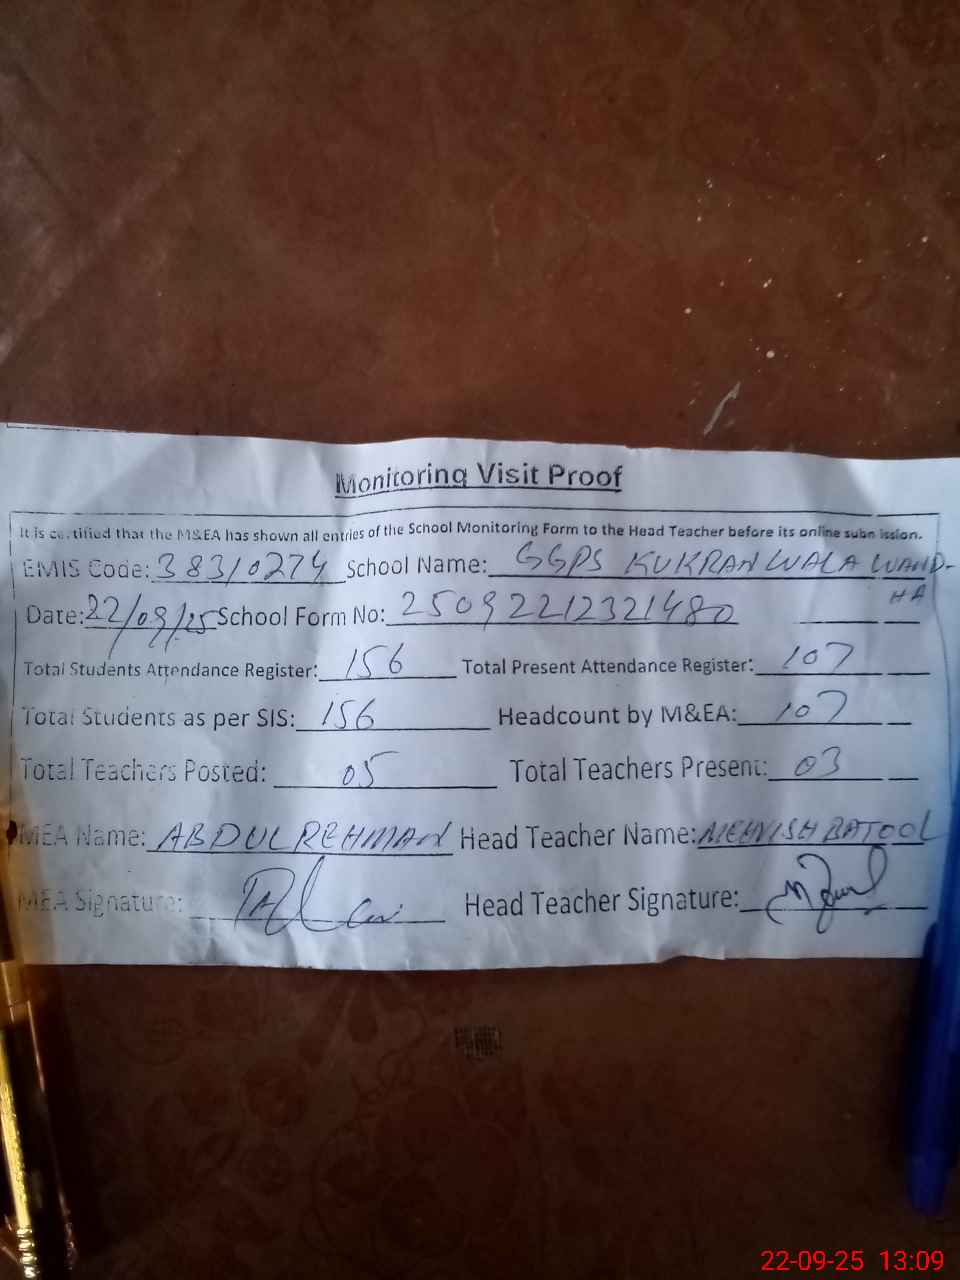 Monitoring Visit Proof
It is certified that the M&EA has shown all entries of the School Monitoring Form to the Head Teacher before its online submission.
EMIS Code: 38310274 School Name: GGPS KUKRANWALA WAND-
HA
Date: 22/09/25 School Form No: 25092212321480
Total Students Attendance Register: 156 Total Present Attendance Register: 107
Total Students as per SIS: 156 Headcount by M&EA: 107
Total Teachers Posted: 05 Total Teachers Present: 03
MEA Name: ABDUL REHMAN Head Teacher Name: MEHVISH BATOOL
MEA Signature: Head Teacher Signature:
22-09-25 13:09